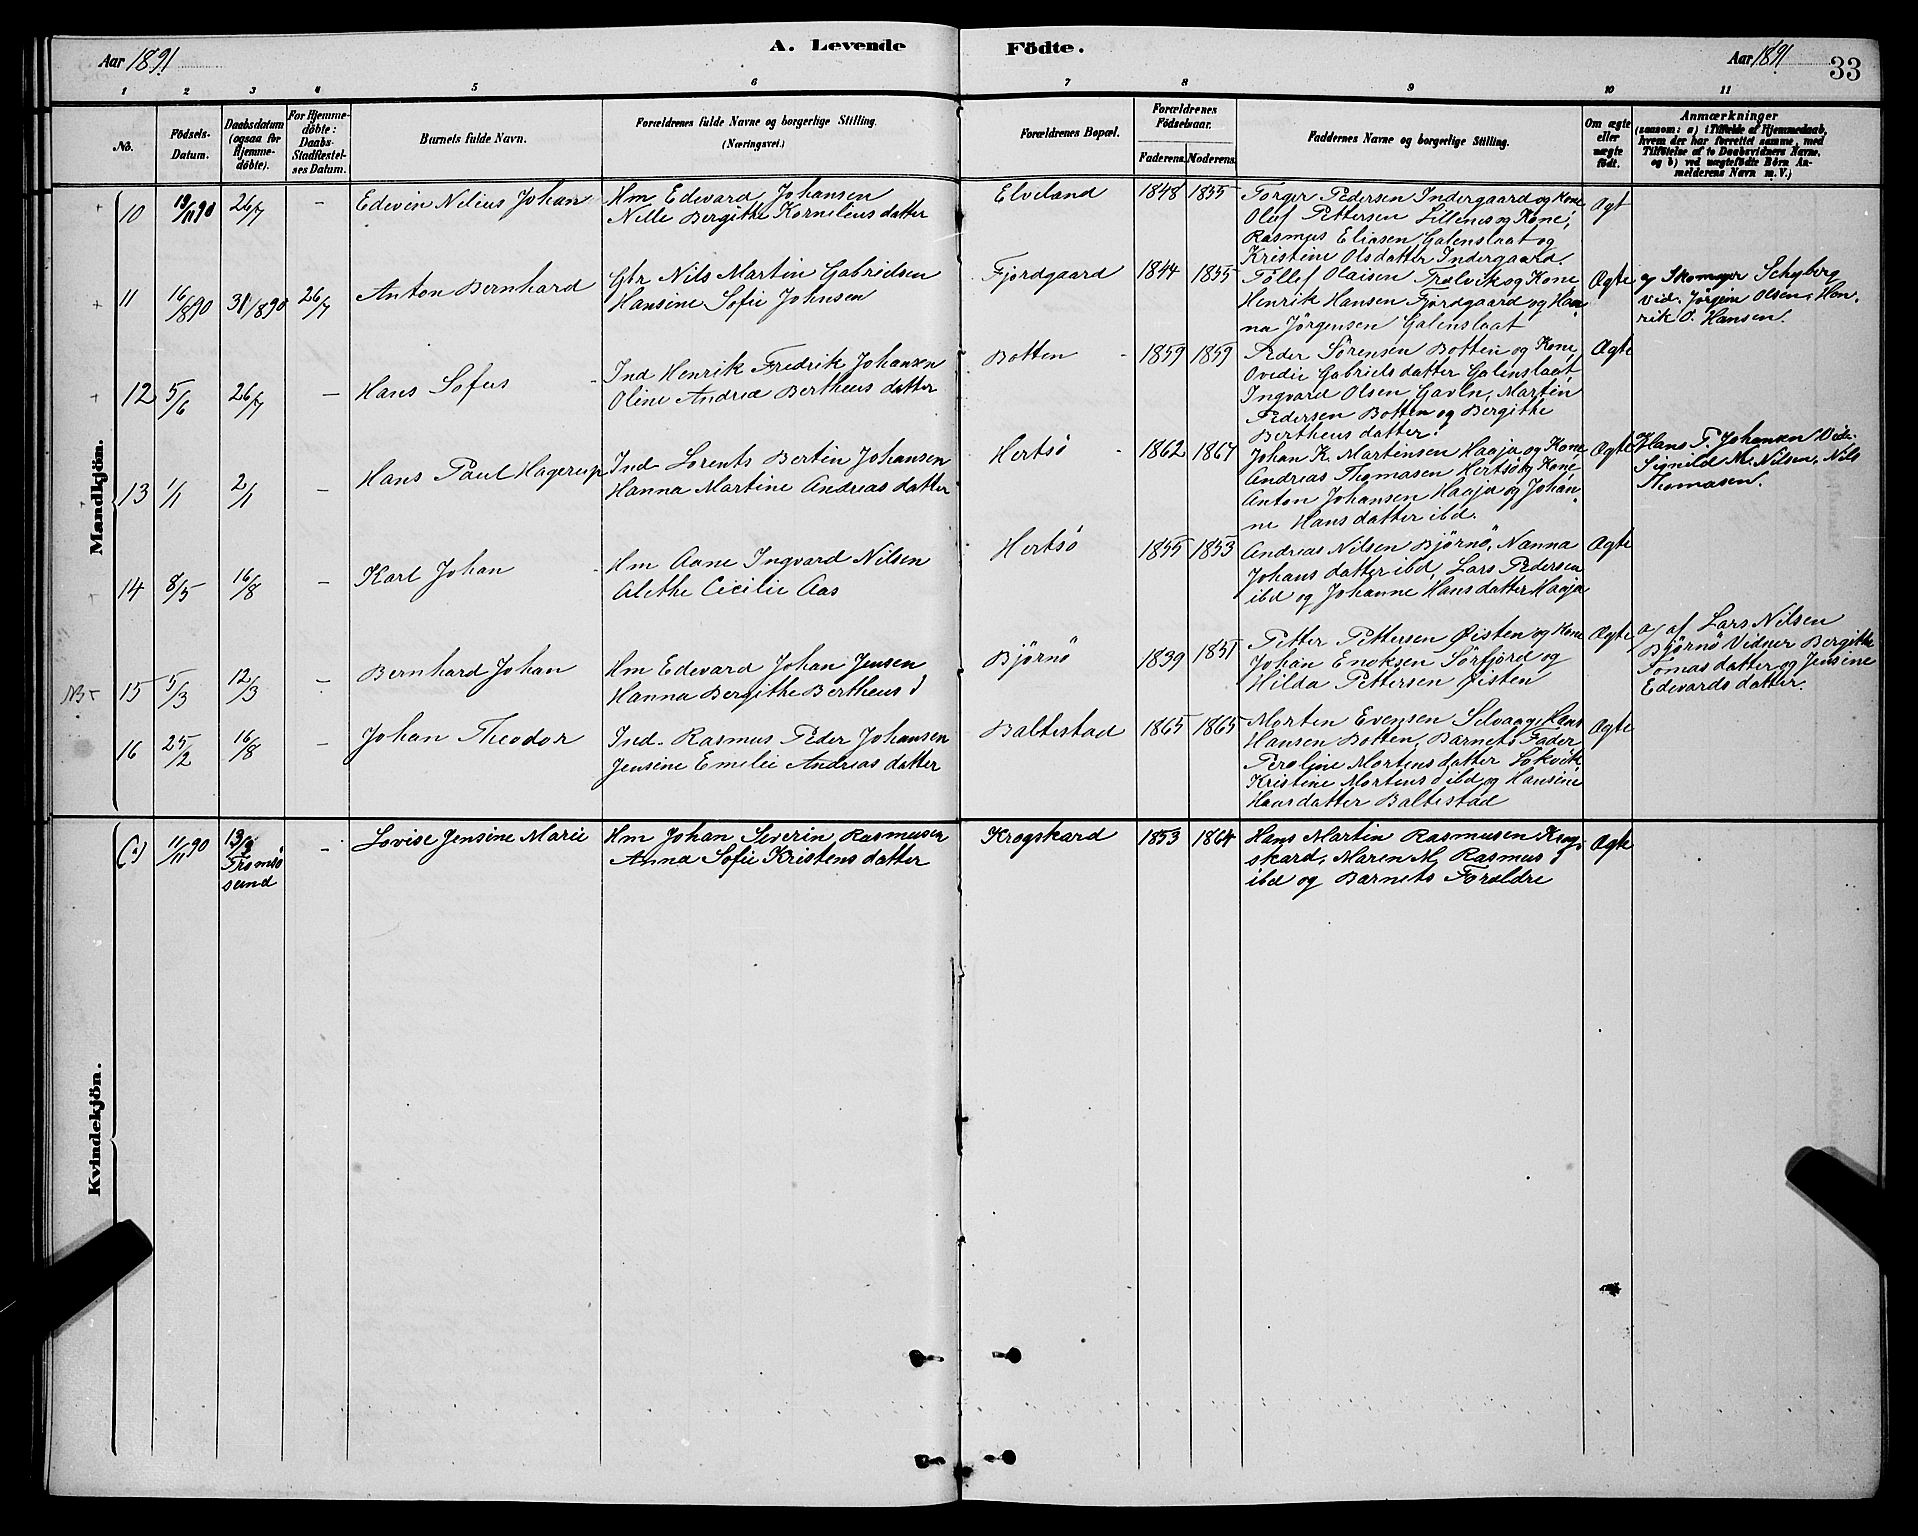 Aar 1891
A. Levende Födte.
Aar 1891
33
1 2 3 4 5 6 7 8 9 10 11
No.
Födsels-Datum.
Daabsdatum (ogsaa for Hjemmedöbte).
For Hjemmedöbte: Daabs-Stadfæstelses Datum.
Barnets fulde Navn.
Forældrenes fulde Navne og borgerlige Stilling.
(Næringsvei.)
Forældrenes Bopæl.
Forældrenes Födselsaar.
Faderens. Moderens.
Faddernes Navne og borgerlige Stilling.
Om ægte eller uægte födt.
Anmærkninger
(saasom: a) i Tilfælde af Hjemmedaab,
hvem der har forrettet samme, med
Tilföielse af to Daabsvidners Navne,
og b) ved uægtefödte Börn Anmelderens Navn m. V.)
Mandkjön.
10 19/11 90 26/7 - Edevin Nilius Johan
Hm Edevard Johansen
Nille Bergithe Kornelius datter
Elveland 1848 1855
Torger Pedersen Indergaard og Kone
Oluf Pettersen Lillenes og Kone,
Rasmus Eliasen Galenslaat og
Kristine Olsdatter Indergaard.
Ægt
11 16/8 90 31/8 90 26/7 Anton Bernhard
Gbr Nils Martin Gabrielsen
Hansine Sofie Johnsen
Fjordgaard 1844 1855
Töllef Olaisen Trolvik og Kone
Henrik Hansen Fjordgaard og Han-
na Jörgensen Galenslaat
Ægte
af Skomager Schyberg
Vid. Jörgen Olsen, Hen-
rik O. Hansen.
12 5/6 26/7 - Hans Sofus
Ind Henrik Fredrik Johansen
Oline Andrea Bertheus datter
Botten 1859 1859
Peder Sörensen Botten og Kone,
Ovedie Gabriels datter Galenslaat,
Ingvard Olsen Gavln, Martin
Pedersen Botten og Bergithe
Bertheus datter.
Ægte
13 1/1 2/1 - Hans Paul Hagerup
Ind Lorents Bertin Johansen
Hanna Martine Andreas datter
Hertsö 1862 1867
Johan K. Martinsen Haaja og Kone
Andreas Thomasen Hertsö og Kone
Anton Johansen Haaja og Johan-
ne Hans datter ibd.
Ægte
Hans P. Johansen Vid.
Signild M. Nilsen, Nils
Thomasen.
14 8/5 16/8 - Karl Johan
Hm Aane Ingvard Nilsen
Alethe Cicilie Aas
Hertsö 1855 1853
Andreas Nilsen Björnö, Nanna
Johans datter ibd, Lars Pedersen
ibd og Johanne Hans datter Haaja
Ægte
NB- 15 5/3 12/3 - Bernhard Johan
Hm Edevard Johan Jensen
Hanna Bergithe Bertheus d
Björnö 1839 1851
Petter Pettersen Øisten og Kone
Johan Enoksen Sörfjord og
Hilda Pettersen Øisten
Ægte
a/ af Lars Nilsen
Björnö Vidner Bergithe
Tomas datter og Jensine
Edevards datter.
16 25/2 16/8 - Johan Theodor
Ind. Rasmus Peder Johansen
Jensine Emelie Andreas datter
Baltestad 1865 1865
Morten Evensen Selvaag, Hans
Hansen Botten, Barnets Fader
Peroline Mortens datter Lökvik
Kristine Mortens d ibd og Hansine
Hans datter Baltestad
Ægte
Kvindekjön.
11/11 90 13/3 Tromsö sund - Lovise Jensine Marie
Hm Johan Severin Rasmusen
Anna Sofie Kristens datter
Krogskard 1853 1864
Hans Martin Rasmusen Krog-
skard, Maren M. Rasmus d
ibd og Barnets Forældre
Ægte